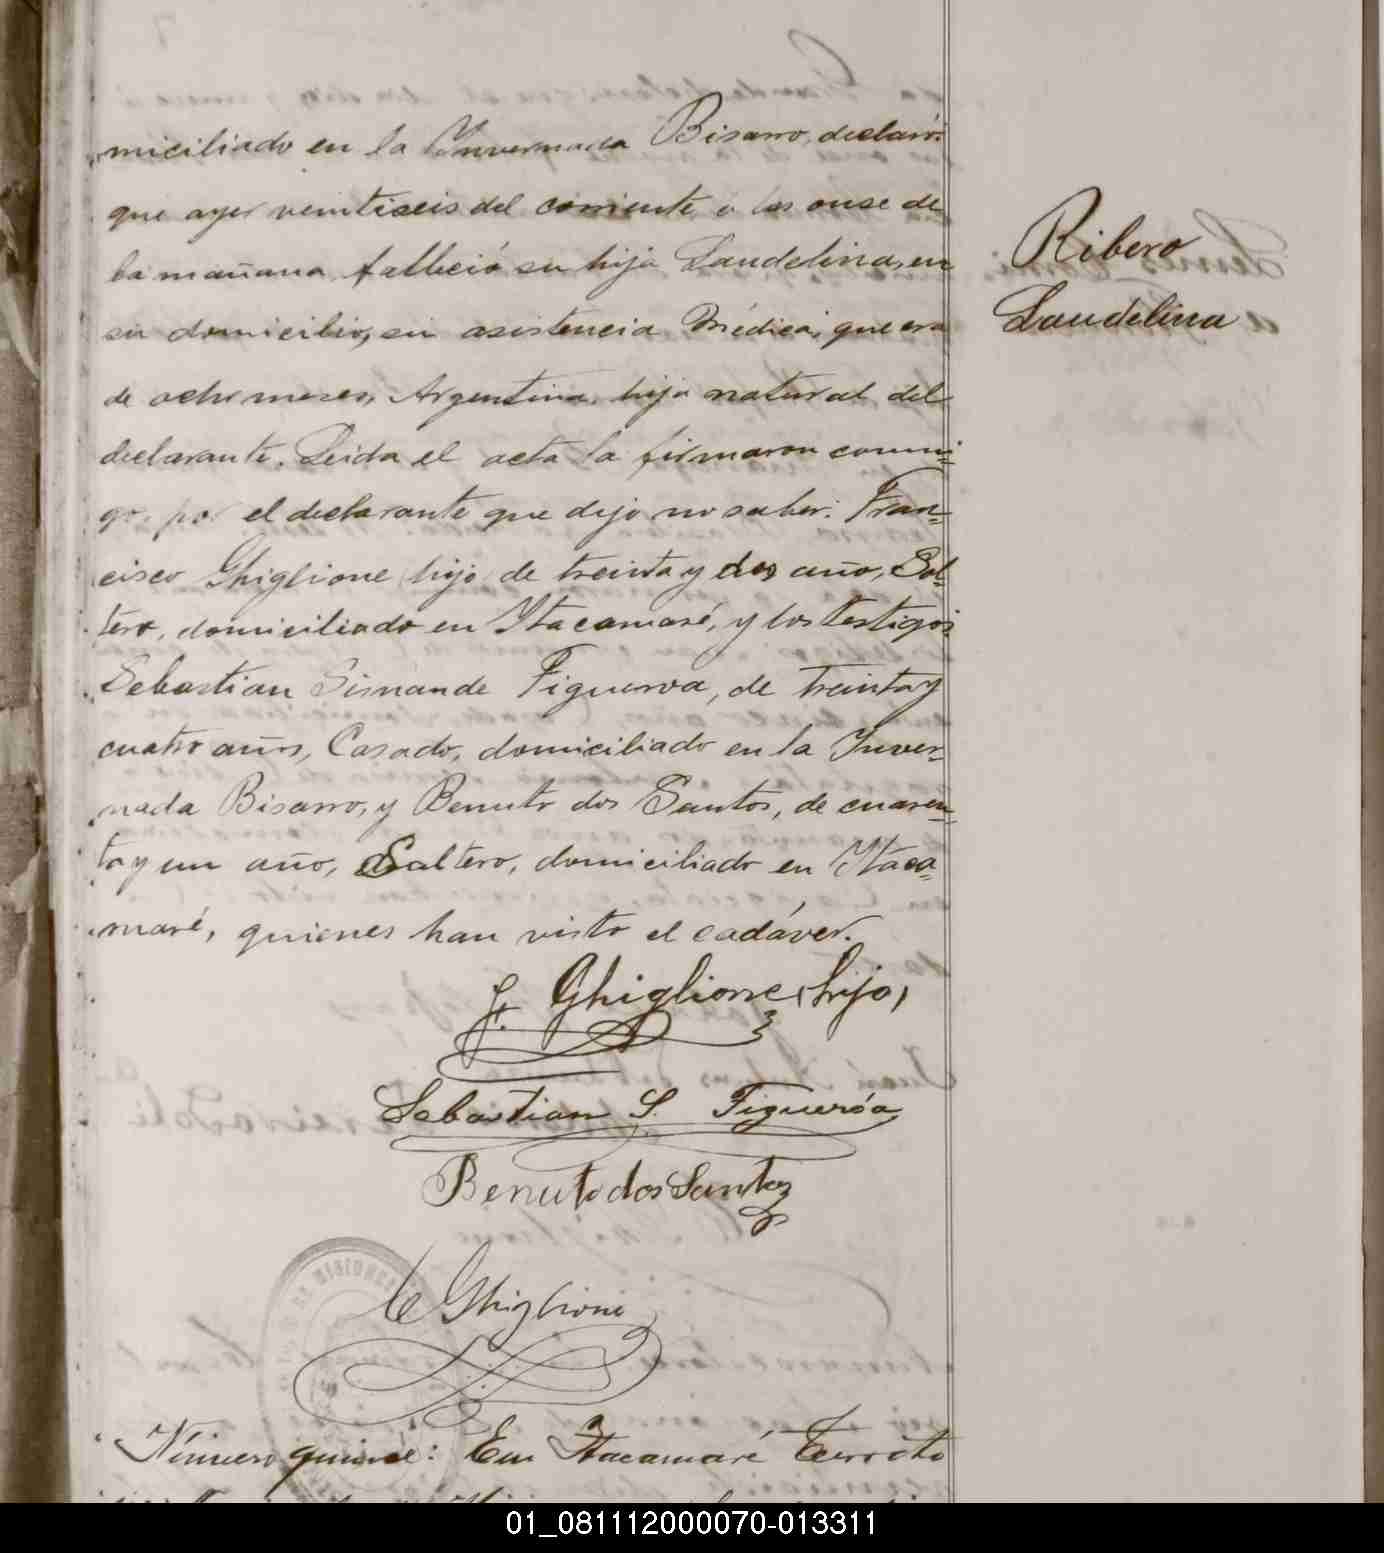 miciliado en la Invernada Bisarro, declaró:
que ayer veintiseis del corriente á las onse de
la mañana falleció su hija Laudelina, en
su domicilio, sin asistencia médica, que era
de ocho meses, Argentina, hija natural del
declarante. Leida el acta la firmaron conmi-
go, por el declarante que dijo no saber. Fran-
cisco Ghiglione hijo de treinta y dos año, Sol-
tero, domiciliado en Ytacamaré, y los testigos
Sebastian Sisnande Figueroa, de treinta y
cuatro años, Casado, domiciliado en la Inver-
nada Bisarro, y Benuto dos Santos, de cuaren-
ta y un año, Saltero, domiciliado en Ytaca-
maré, quienes han visto el cadáver.
Ribero
Laudelina
F. Ghiglione (hijo)
Sebastian S. Figueróa
Benuto dos Santos
Ghiglione
DE MISIONES
Número quince: En Itacamaré Territo
01_081112000070-013311